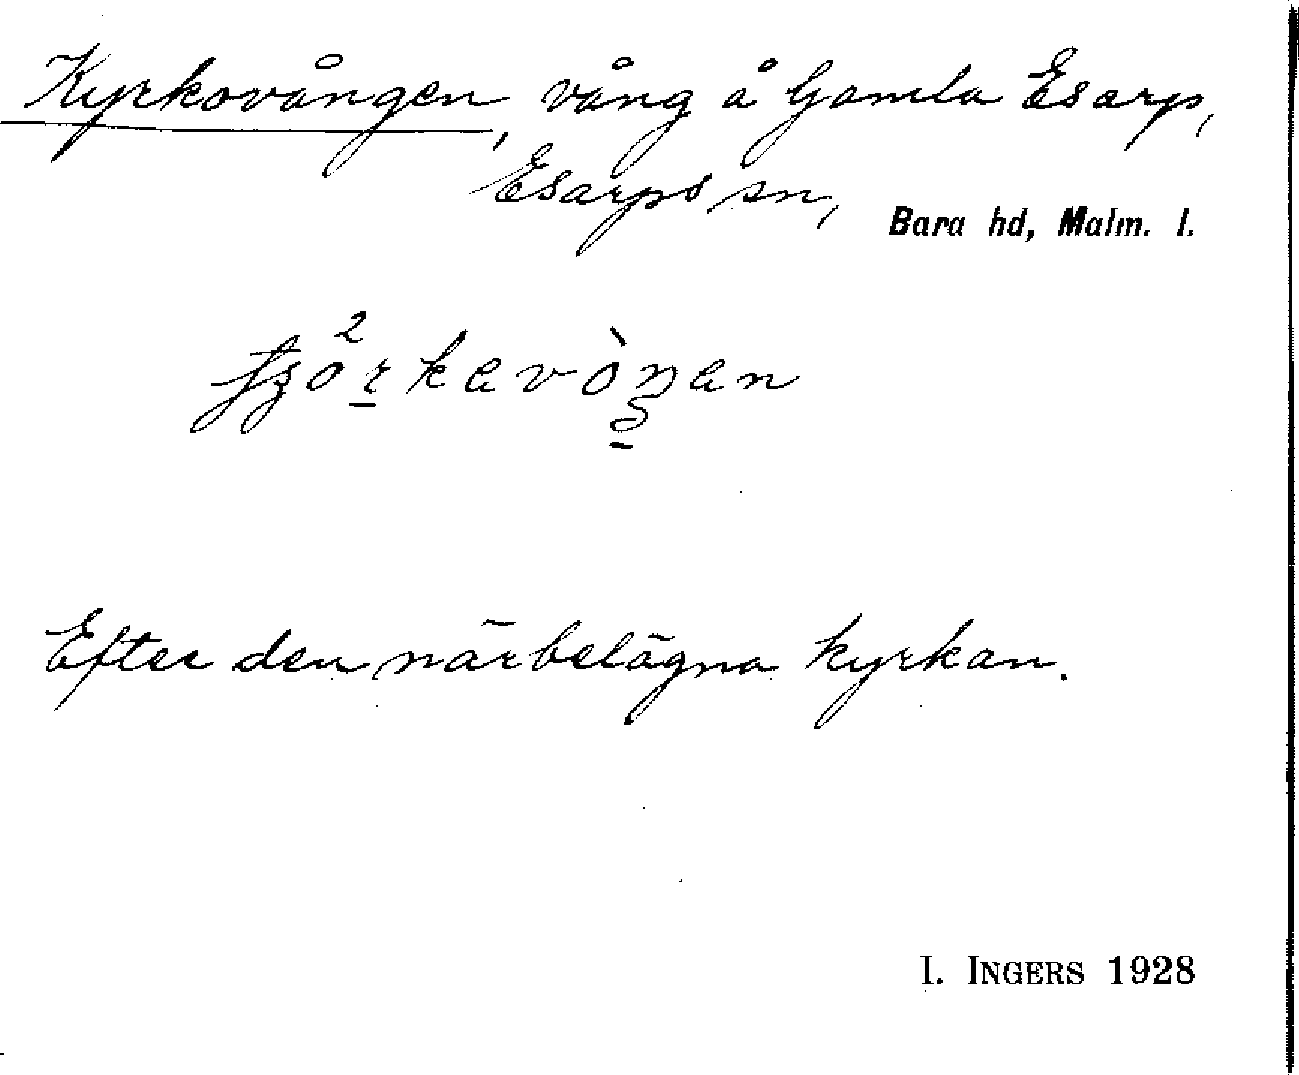 Kyrkovången, vång å Gamla Esarp,
Esarps sn,
Bara hd, Malm. l.
Efter den närbelägna kyrkan.
I. INGERS 1928